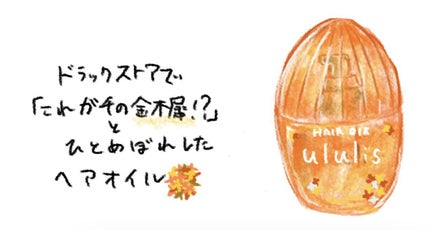 ドラックストアで
「これがその金木犀!?」
と
ひとめぼれした
ヘアオイル
HAIR OIL
ululis